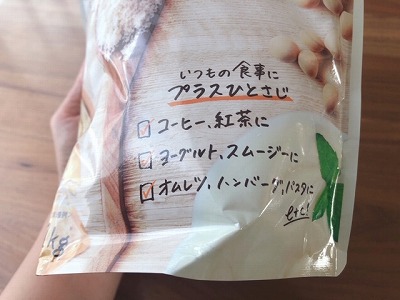 いつもの食事に
プラスひとさじ
コーヒー、紅茶に
ヨーグルト、スムージーに
オムレツ、ハンバーグ、パスタに
etc!